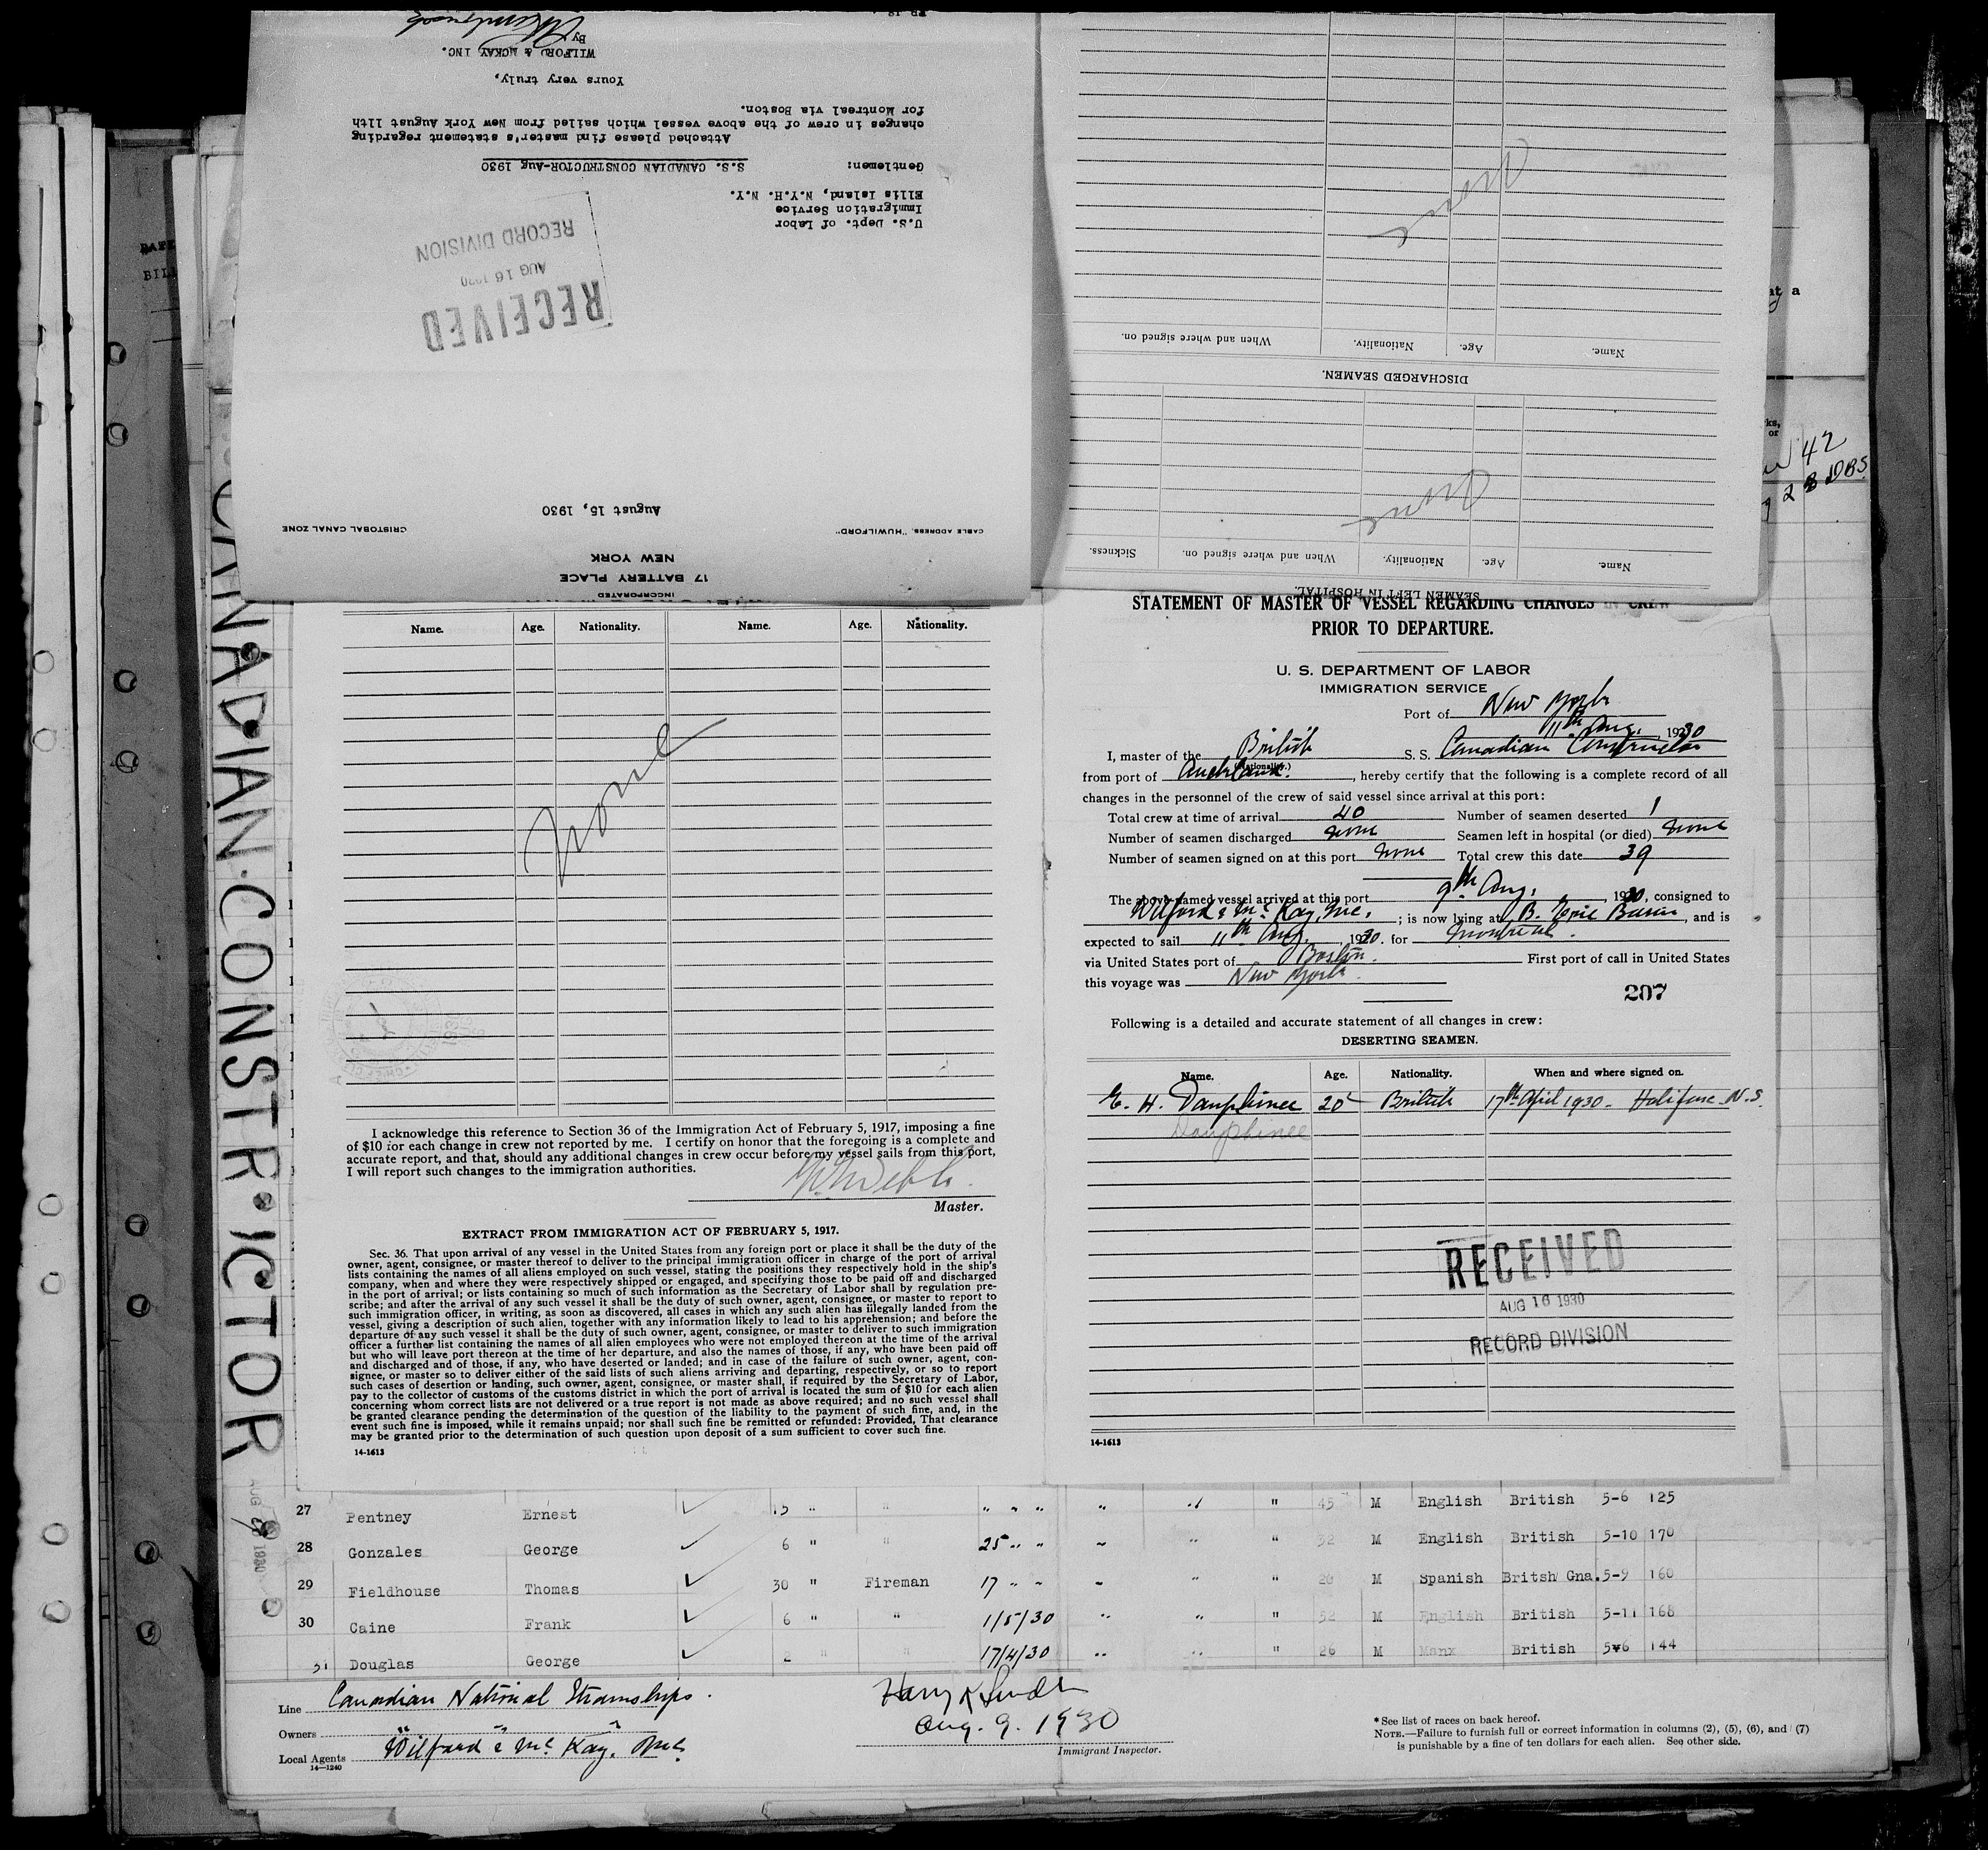 WILFORD & MCKAY INC.
By
Yours very truly,
for Montreal via Boston.
changes in crew of the above vessel which sailed from New York August 11th
Attached please find master's statement regarding
Gentlemen: S.S. CANADIAN CONSTRUCTOR-Aug 1930
Ellis Island, N.Y.H. N.Y.
Immigration Service
U.S. Dept. of Labor
RECORD DIVISION
AUG 16 1930
RECEIVED
August 15, 1930
CABLE ADDRESS, "HUWILFORD" CRISTOBAL CANAL ZONE
NEW YORK
17 BATTERY PLACE
INCORPORATED
None
Name. Age. Nationality. When and where signed on.
DISCHARGED SEAMEN.
None
Name. Age. Nationality. When and where signed on. Sickness.
SEAMEN LEFT IN HOSPITAL.
at a
ks,
or
42
2 8 DBS
BIL
CANADIAN · CONSTRUCTOR
AUG 1930
Name. Age. Nationality. Name. Age. Nationality.
None
I acknowledge this reference to Section 36 of the Immigration Act of February 5, 1917, imposing a fine
of $10 for each change in crew not reported by me. I certify on honor that the foregoing is a complete and
accurate report, and that, should any additional changes in crew occur before my vessel sails from this port,
I will report such changes to the immigration authorities.
Webb.
Master.
EXTRACT FROM IMMIGRATION ACT OF FEBRUARY 5, 1917.
Sec. 36. That upon arrival of any vessel in the United States from any foreign port or place it shall be the duty of the
owner, agent, consignee, or master thereof to deliver to the principal immigration officer in charge of the port of arrival
lists containing the names of all aliens employed on such vessel, stating the positions they respectively hold in the ship's
company, when and where they were respectively shipped or engaged, and specifying those to be paid off and discharged
in the port of arrival; or lists containing so much of such information as the Secretary of Labor shall by regulation pre-
scribe; and after the arrival of any such vessel it shall be the duty of such owner, agent, consignee, or master to report to
such immigration officer, in writing, as soon as discovered, all cases in which any such alien has illegally landed from the
vessel, giving a description of such alien, together with any information likely to lead to his apprehension; and before the
departure of any such vessel it shall be the duty of such owner, agent, consignee, or master to deliver to such immigration
officer a further list containing the names of all alien employees who were not employed thereon at the time of the arrival
but who will leave port thereon at the time of her departure, and also the names of those, if any, who have been paid off
and discharged and of those, if any, who have deserted or landed; and in case of the failure of such owner, agent, con-
signee, or master so to deliver either of the said lists of such aliens arriving and departing, respectively, or so to report
such cases of desertion or landing, such owner, agent, consignee, or master shall, if required by the Secretary of Labor,
pay to the collector of customs of the customs district in which the port of arrival is located the sum of $10 for each alien
concerning whom correct lists are not delivered or a true report is not made as above required; and no such vessel shall
be granted clearance pending the determination of the question of the liability to the payment of such fine, and, in the
event such fine is imposed, while it remains unpaid; nor shall such fine be remitted or refunded: Provided, That clearance
may be granted prior to the determination of such question upon deposit of a sum sufficient to cover such fine.
14-1613
STATEMENT OF MASTER OF VESSEL REGARDING CHANGES IN CREW
PRIOR TO DEPARTURE.
U. S. DEPARTMENT OF LABOR
IMMIGRATION SERVICE
Port of New York
11th Aug. , 1930
I, master of the British S. S. Canadian Constructor
(Nationality.)
from port of Auckland. , hereby certify that the following is a complete record of all
changes in the personnel of the crew of said vessel since arrival at this port:
Total crew at time of arrival 40 Number of seamen deserted 1
Number of seamen discharged none Seamen left in hospital (or died) none
Number of seamen signed on at this port none Total crew this date 39
The above-named vessel arrived at this port 9th Aug. , 1930, consigned to
Wilford & Mc Kay, Inc. ; is now lying at B. Erie Basin , and is
expected to sail 11th Aug. , 1930. for Montreal.
via United States port of Boston. First port of call in United States
this voyage was New York.
207
Following is a detailed and accurate statement of all changes in crew:
DESERTING SEAMEN.
Name. Age. Nationality. When and where signed on.
E. H. Dauphinee 20 British 17th April 1930 - Halifax N.S.
Dauphinee
RECEIVED
AUG 16 1930
RECORD DIVISION
14-1613
27 Pentney Ernest 15 " " " " " " " " 45 M English British 5-6 125
28 Gonzales George 6 " " 25 " " " " " 32 M English British 5-10 170
29 Fieldhouse Thomas 30 " Fireman 17 " " " " " 20 M Spanish Britsh Gna. 5-9 160
30 Caine Frank 6 " " 1/5/30 " " " 52 M English British 5-11 168
31 Douglas George 2 " " 17/4/30 " " " 26 M Manx British 5-6 144
Line Canadian National Steamships.
Owners " " "
Local Agents Wilford & Mc Kay, Inc.
14-1240
Harry
Aug. 9. 1930
Immigrant Inspector.
*See list of races on back hereof.
NOTE.—Failure to furnish full or correct information in columns (2), (5), (6), and (7)
is punishable by a fine of ten dollars for each alien. See other side.